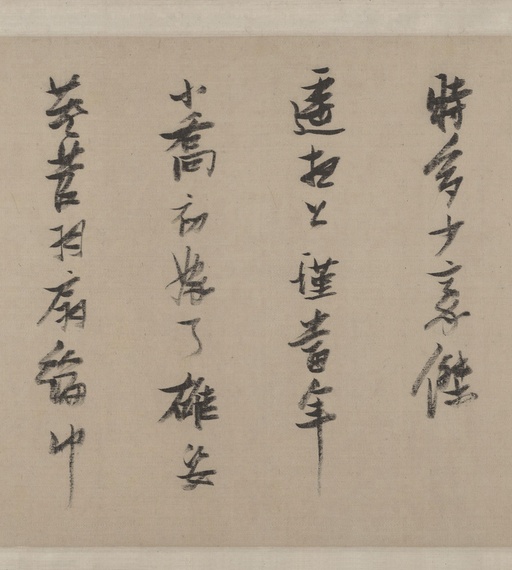 時多少豪傑
遙想公瑾當年
小喬初嫁了雄姿
英羽扇綸巾